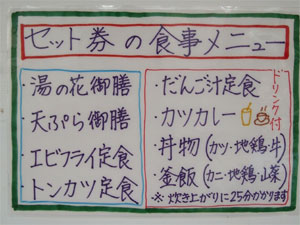 セット券の食事メニュー
・湯の花御膳
・天ぷら御膳
・エビフライ定食
・トンカツ定食
・だんご汁定食
・カツカレー
・丼物(カツ・地鶏・牛)
・釜飯(カニ・地鶏・山菜)
※炊き上がりに25分かかります
ドリンク付